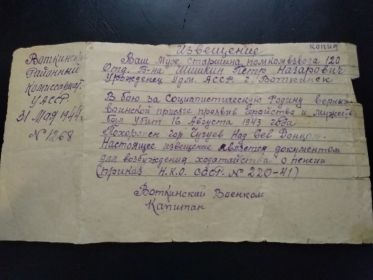 Извещение
копия
Воткинский
Районный
Комиссариат
УАССР
31 Мая 1944 г.
№ 1268
Ваш Муж старшина помкомвзвода 120
Отд. Б-на Шишкин Петр Назарович
Уроженец Удм. АССР г. Воткинск
В бою за Социалистическую Родину верный
воинской присяге проявив геройство и мужество
был убит 16 Августа 1943 года
Похоронен гор Чугуев Над Сев Донцом.
Настоящее извещение является документом
для возбуждения ходатайства о пенсии
(приказ Н.К.О. СССР № 220-41)
Воткинский Военком
Капитан